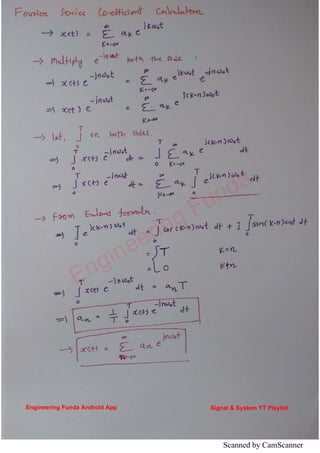 Fourier Series Co-efficient Calculation
→ x(t) = ∞ Σ K=-∞ aₖ e^{jkω₀t}
→ Multiply e^{-jnω₀t} both the side.
⇒ x(t) e^{-jnω₀t} = ∞ Σ K=-∞ aₖ e^{jkω₀t} e^{-jnω₀t}
⇒ x(t) e^{-jnω₀t} = ∞ Σ K=-∞ aₖ e^{j(k-n)ω₀t}
→ Let, T ∫ 0 on both sides.
⇒ T ∫ 0 x(t) e^{-jnω₀t} dt = T ∫ 0 ∞ Σ K=-∞ aₖ e^{j(k-n)ω₀t} dt
⇒ T ∫ 0 x(t) e^{-jnω₀t} dt = ∞ Σ K=-∞ aₖ T ∫ 0 e^{j(k-n)ω₀t} dt
→ From Eulers formula.
⇒ T ∫ 0 e^{j(k-n)ω₀t} dt = T ∫ 0 cos(k-n)ω₀t dt + j T ∫ 0 sin(k-n)ω₀t dt
= { T K=n
= { 0 K≠n
⇒ T ∫ 0 x(t) e^{-jnω₀t} dt = aₙT
⇒ aₙ = 1/T T ∫ 0 x(t) e^{-jnω₀t} dt
→ x(t) = ∞ Σ n=-∞ aₙ e^{jnω₀t}
Engineering Funda
Engineering Funda Android App Signal & System YT Playlist
Scanned by CamScanner